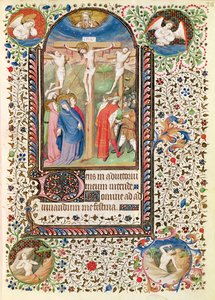 INRI
Deus in adiutoriū
meum intende
Domine ad ad
iuuandum me festina